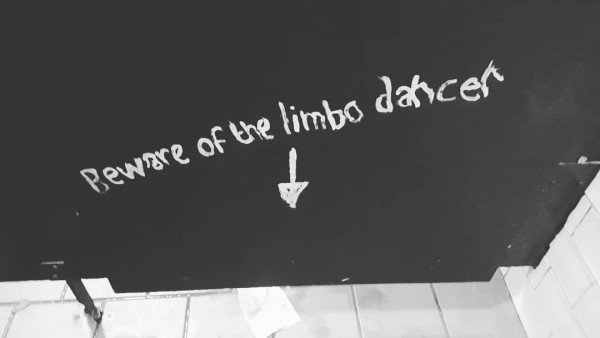 Beware of the limbo dancer